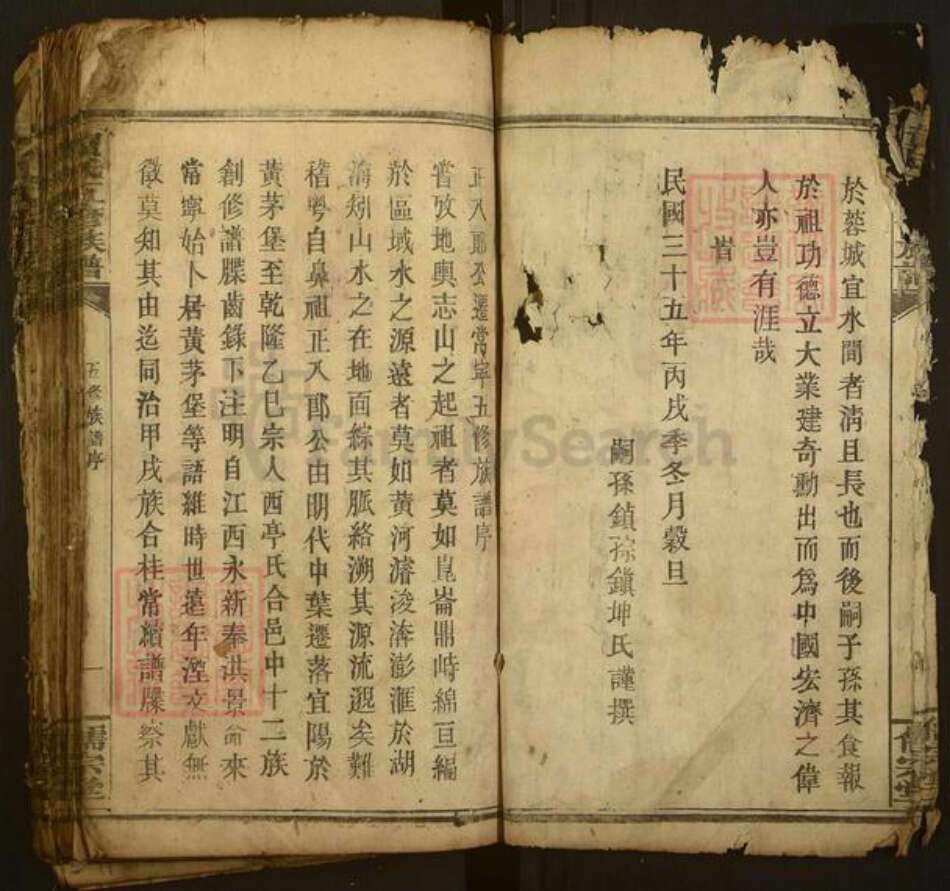 於蓉城宜水間者清且長也而後嗣子孫其食報
於祖功德立大業建奇勳出而為中國宏濟之偉
人亦豈有涯哉
旹
民國三十五年丙戌季冬月穀旦
嗣孫鎮琮鎭坤氏謹撰
正八郎公遷常寧五修族譜序
嘗攷地輿志山之起祖者莫如崑崙鼎峙綿亘編
於區域水之源遠者莫如黃河濬浚滂澎滙於湖
海矧山水之在地面綜其脈絡溯其源流遐矣難
稽粵自鼻祖正八郎公由明代中葉遷落宜陽於
黃茅堡至乾隆乙巳宗人西亭氏合邑中十二族
創修譜牒齒錄下注明自江西永新奉洪景命來
常寧始卜居黃茅堡等語維時世遠年湮文獻無
徵莫知其由迄同治甲戌族合桂常續譜牒察其
五修族譜
五修族譜序
一
儒宗堂
FamilySearch